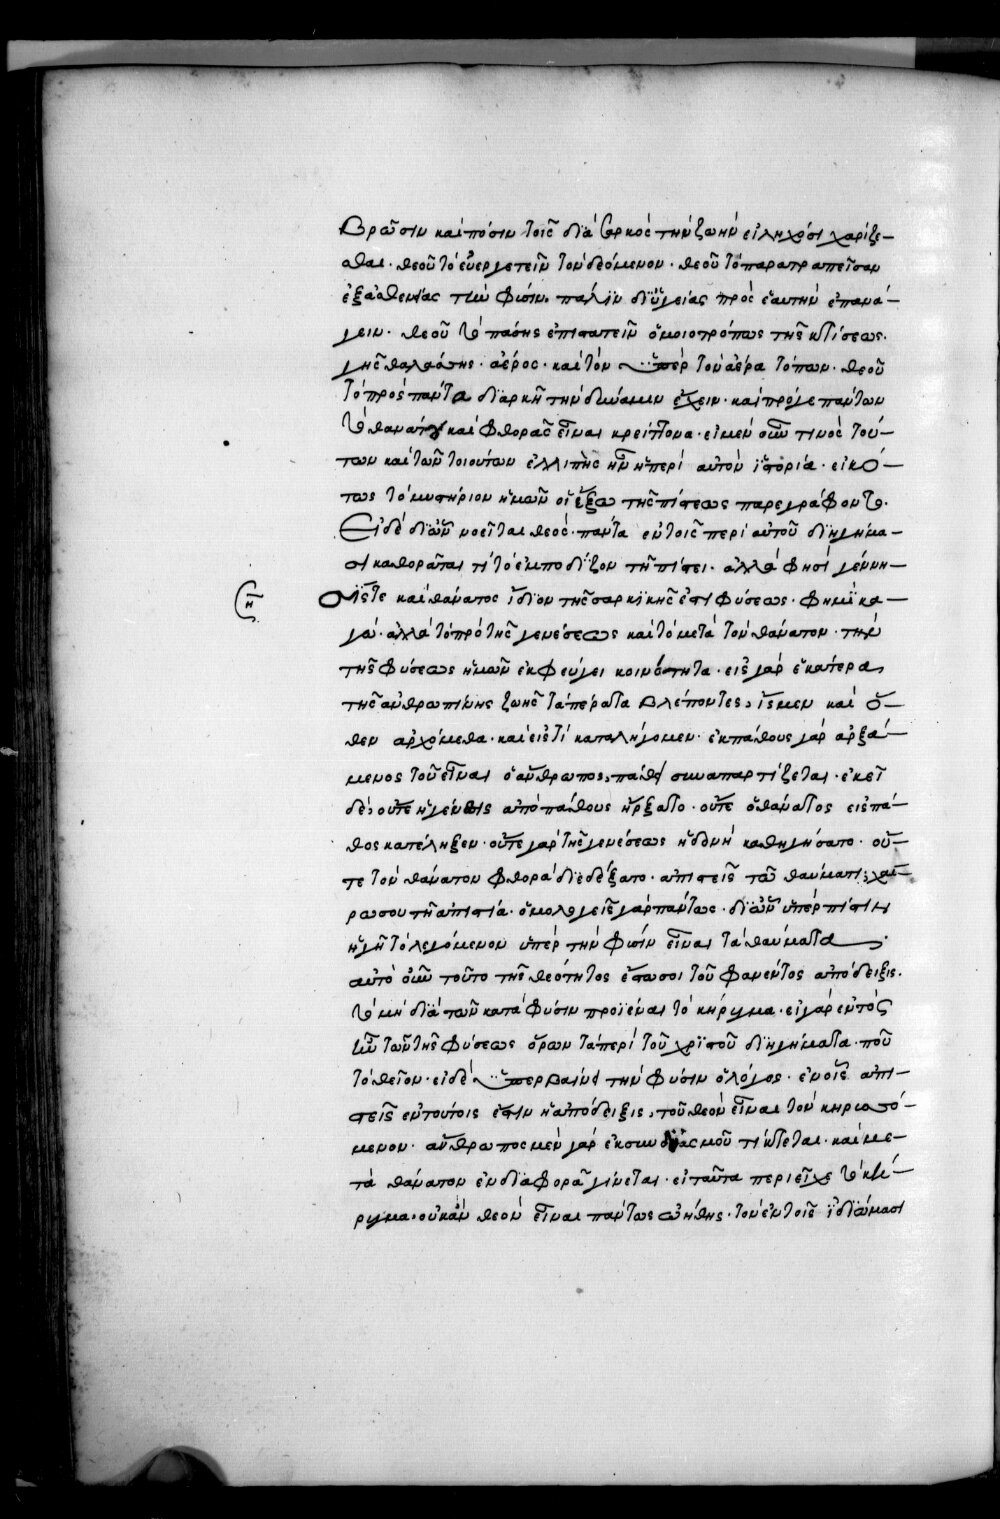 βρῶσιν καὶ πόσιν τοῖς διὰ σαρκὸς τὴν ζωὴν εἰληχόσι χαρίζε–
σθαι· θεοῦ τὸ εὐεργετεῖν τὸν δεόμενον· θεοῦ τὸ παρατραπεῖσαν
ἐξ ἀσθενείας τὴν φύσιν, πάλιν δι' ὑγείας πρὸς ἑαυτὴν ἐπανά–
γειν· θεοῦ τὸ πάσης ἐπιστατεῖν ὁμοιοτρόπως τῆς κτίσεως·
γῆς θαλάσσης· ἀέρος· καὶ τῶν ὑπὲρ τὸν ἀέρα τόπων· θεοῦ
τὸ πρὸς πάντα διαρκῆ τὴν δύναμιν ἔχειν· καὶ πρό γε πάντων
τὸ θανάτου καὶ φθορᾶς εἶναι κρείττονα· εἰ μὲν οὖν τινὸς τού–
των καὶ τῶν τοιούτων ἐλλιπὴς ἦν ἡ περὶ αὐτὸν ἱστορία· εἰκό–
τως τὸ μυστήριον ἡμῶν οἱ ἔξω τῆς πίστεως παρεγράφοντο·
Εἰ δὲ δι' ὧν νοεῖται θεὸς· πάντα ἐν τοῖς περὶ αὐτοῦ διηγήμα–
σι καθορᾶται τί τὸ ἐμποδίζον τῇ πίστει· ἀλλὰ φησὶ γέννη–
η
σίς τε καὶ θάνατος ἴδιον τῆς σαρκικῆς ἐστι φύσεως· φημὶ κα–
γώ· ἀλλὰ τὸ πρὸ τῆς γενέσεως καὶ τὸ μετὰ τὸν θάνατον· τὴν
τῆς φύσεως ἡμῶν ἐκφεύγει κοινότητα· εἰς γὰρ ἑκάτερα
τῆς ἀνθρωπίνης ζωῆς τὰ πέρατα βλέποντες, ἴσμεν καὶ ὅ–
θεν ἀρχόμεθα· καὶ εἰς τί καταλήγομεν· ἐκ πάθους γὰρ ἀρξά–
μενος τοῦ εἶναι ὁ ἄνθρωπος, πάθει συναπαρτίζεται· ἐκεῖ
δὲ, οὔτε ἡ γέννησις ἀπὸ πάθους ἤρξατο· οὔτε ὁ θάνατος εἰς πά–
θος κατέληξεν· οὔτε γὰρ τῆς γενέσεως ἡδονὴ καθηγήσατο· οὔ–
τε τὸν θάνατον φθορὰ διεδέξατο· ἀπιστεῖς τῶ θαύματι; χαῖ–
ρω σου τῇ ἀπιστία· ὁμολογεῖς γὰρ πάντως· δι' ὧν ὑπὲρ πίστιν
ἡγῇ τὸ λεγόμενον ὑπὲρ τὴν φύσιν εἶναι τὰ θαύματα·
αὐτὸ οὖν τοῦτο τῆς θεότητος ἔστω σοι τοῦ φανέντος ἀπόδειξις·
τὸ μὴ διὰ τῶν κατὰ φύσιν προϊέναι τὸ κήρυγμα· εἰ γὰρ ἐντὸς
ἦν τῶν τῆς φύσεως ὅρων τὰ περὶ τοῦ χριστοῦ διηγήματα· ποῦ
τὸ θεῖον· εἰ δὲ ὑπερβαίνει τὴν φύσιν ὁ λόγος· ἐν οἷς ἀπι–
στεῖς ἐν τούτοις ἐστὶν ἡ ἀπόδειξις, τοῦ θεὸν εἶναι τὸν κηρυσσό–
μενον· ἄνθρωπος μὲν γὰρ ἐκ συνδυασμοῦ τίκτεται· καὶ με–
τὰ θάνατον ἐν διαφθορᾶ γίνεται· εἰ ταῦτα περιεῖχε τὸ κή–
ρυγμα· οὐκ ἂν θεὸν εἶναι πάντως ᾠήθης· τὸν ἐν τοῖς ἰδιώμασι